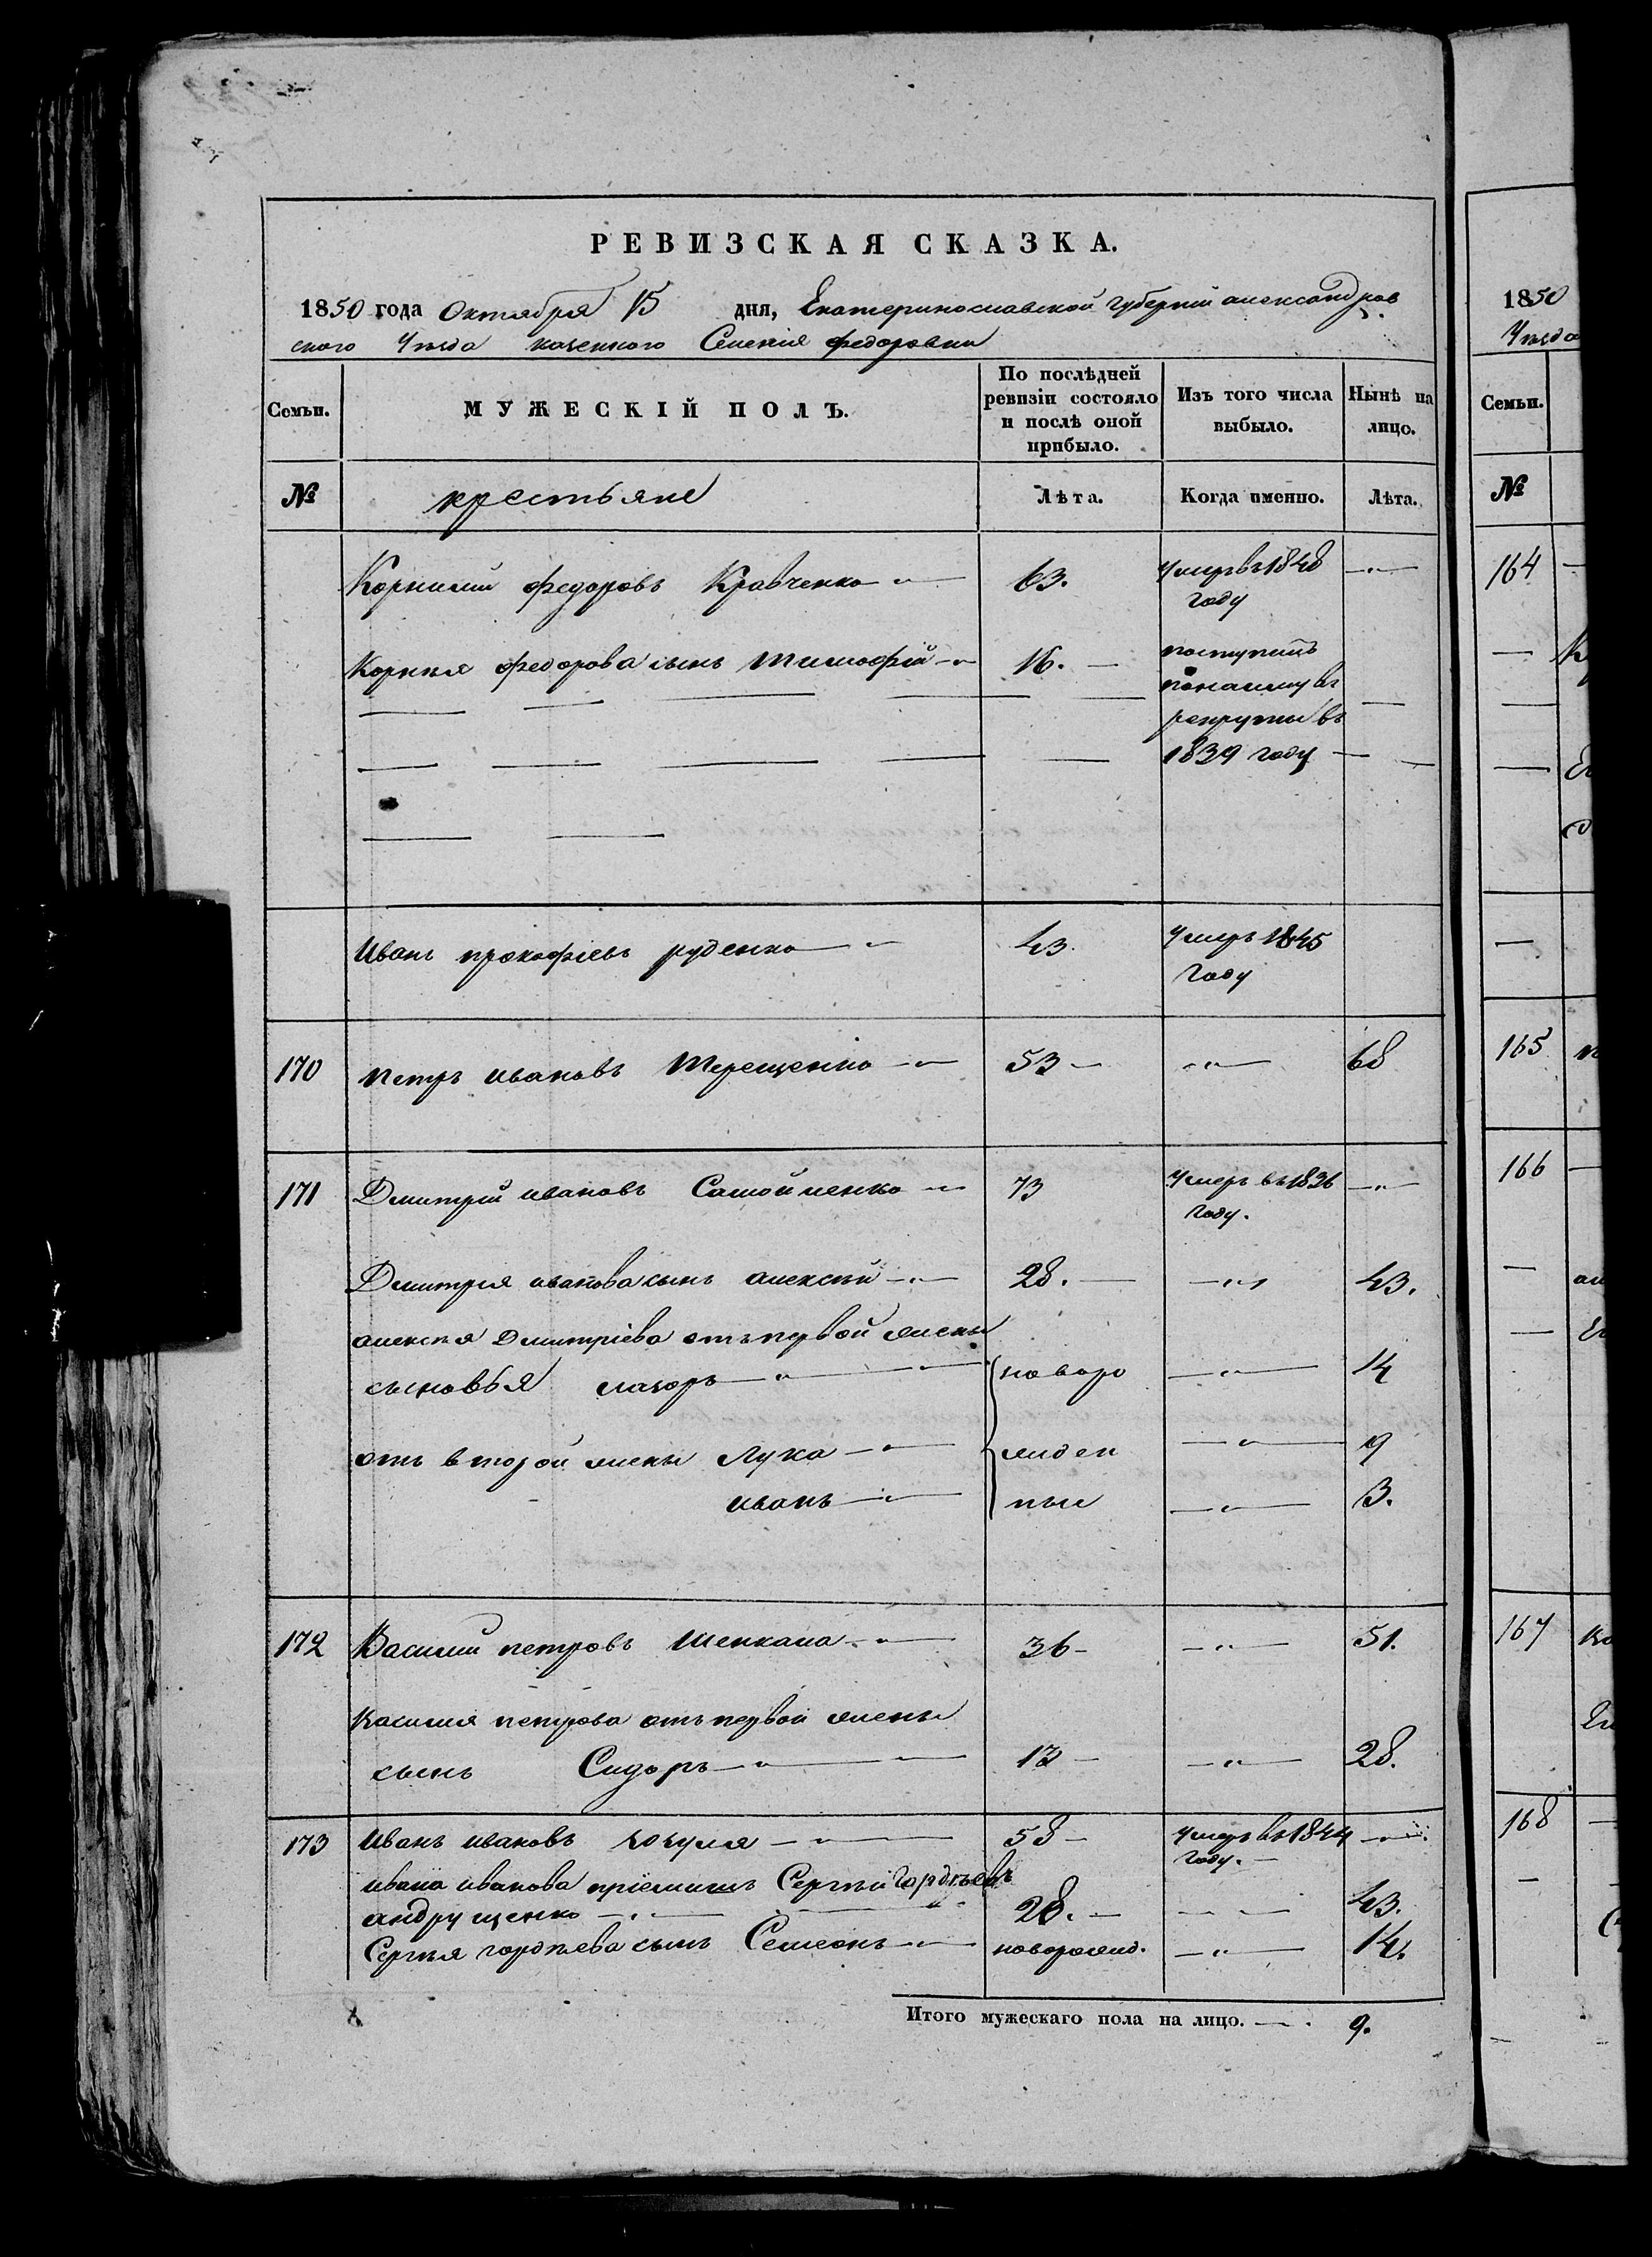 РЕВИЗСКАЯ СКАЗКА.
1850 года Октября 15 дня, Екатеринославской губерніи александров
ского Уезда казенного Селенія федоровки
Семьи. МУЖЕСКІЙ ПОЛЪ. По послѣдней ревизіи состояло и послѣ оной прибыло. Изъ того числа выбыло. Нынѣ на лицо.
№ крестьяне Лѣта. Когда именно. Лѣта.
Корнилий федоровъ Кравченко 63. Умеръ въ 1848
году
Корнея федорова сынъ тимофей 16. поступилъ
по найму въ
рекруты въ
1839 году
Иванъ прокофиевъ руденко 43 Умеръ 1845
году
170 петръ ивановъ терещенко 53 68
171 Дмитрій ивановъ Самойленко 73 Умеръ въ 1836
году.
Дмитрия иванова сынъ алексей 28. 43.
алексея Дмитріева отъ первой жены
сыновья лазоръ новоро 14
отъ второй жены лука жден 9
иванъ ные 3.
172 Василий петровъ 36 51.
василия петрова отъ первой жены
сынъ Сидоръ 13 28.
173 иванъ ивановъ 58 Умеръ въ 1844
году.
ивана иванова пріемышъ Сергѣй Гордѣевъ
андрущенко 28. 43.
Сергѣя гордѣева сынъ Семеонъ новорожд. 14.
Итого мужескаго пола на лицо. 9.
1850
Уезда
Семьи.
№
164
165
166
167
168